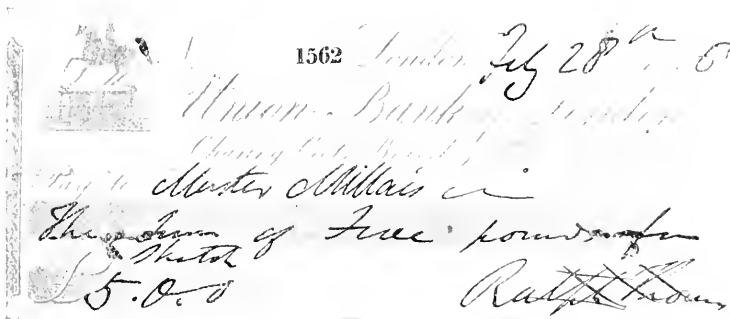 1562 London Feby 28th
Union Bank London
Charing Cross Branch
Pay to Master Millais
The Sum of Five pounds for
Sketch
£5.0.0
Ralph Thomas